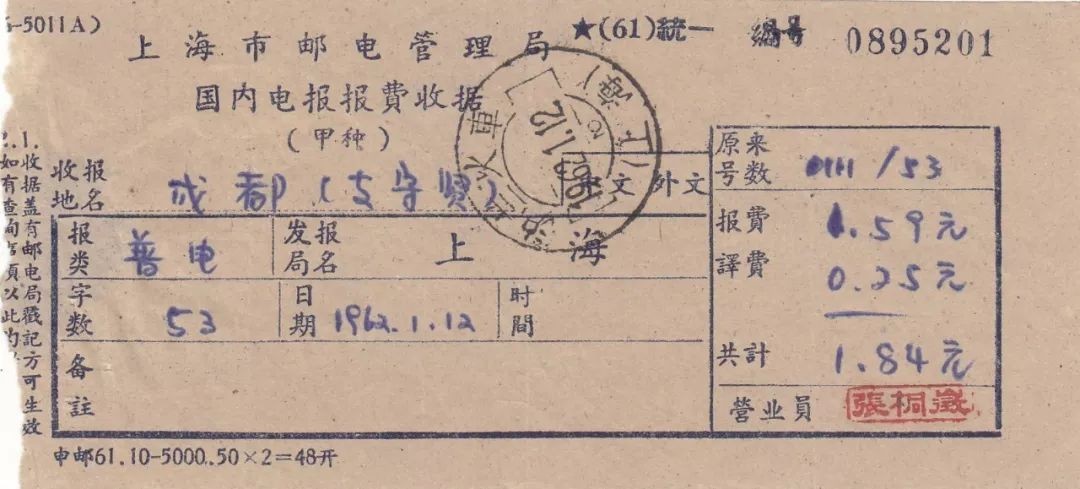 -5011A)
★(61)統一 編号 0895201
上海市邮电管理局
国内电报报費收据
(甲种)
2.1.
收据盖有邮电局戳記方可生效
如有查詢
收报地名 成都(支守贤) 外文
报类 普电 发报局名 上海
字数 53 日期 1962.1.12 时間
备註
原来号数 0111/53
报費 1.59元
譯費 0.25元
共計 1.84元
营业员 張桐徵
火車
1962.1.12
上海
申邮61.10-5000.50×2=48开